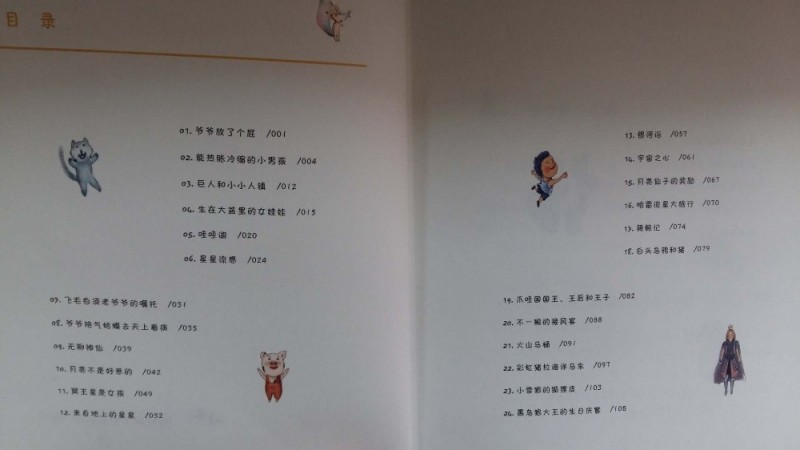 目 录
01. 爷爷放了个屁 /001
02. 能热胀冷缩的小男孩 /004
03. 巨人和小小人镇 /012
04. 生在大蓝里的女娃娃 /015
05. 哇哇调 /020
06. 星星凉感 /024
07. 飞毛白须老爷爷的嘱托 /031
08. 爷爷抱气蛤蟆去天上看病 /035
09. 无聊神仙 /039
10. 月亮不是好惹的 /042
11. 冥王星是女孩 /049
12. 来自地上的星星 /052
13. 银河谣 /057
14. 宇宙之心 /061
15. 月亮仙子的奖励 /067
16. 哈雷彗星大旅行 /070
17. /074
18. 白头乌鸦和猪 /079
19. 爪哇国国王、王后和王子 /082
20. 不一般的接风宴 /088
21. 火山马桶 /091
22. 彩虹猪拉海洋马车 /097
23. 小雪貂的狐狸皮 /103
24. 黑乌鸦大王的生日庆宴 /108